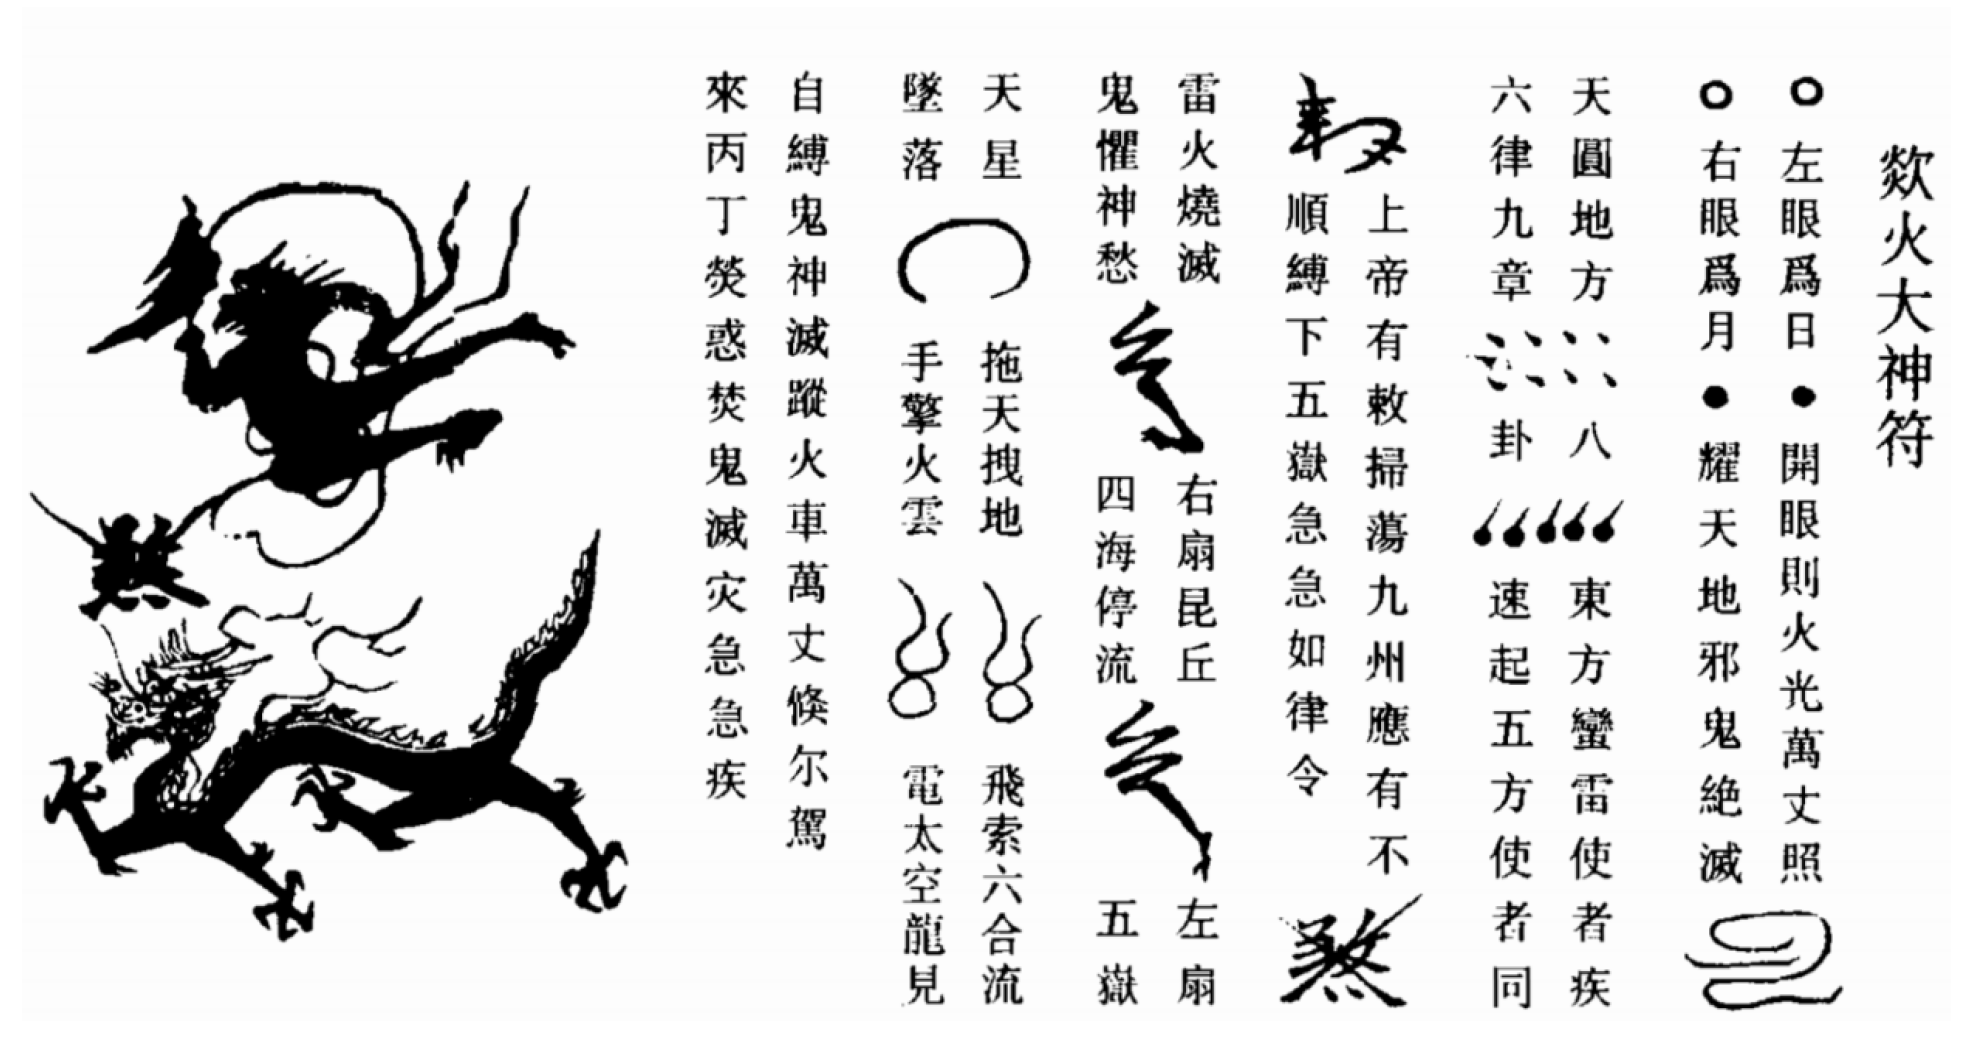 欻火大神符
○左眼爲日●開眼則火光萬丈照
○右眼爲月●耀天地邪鬼絶滅
天圓地方 八 東方蠻雷使者疾
六律九章 卦 速起五方使者同
上帝有敕掃蕩九州應有不
順縛下五嶽急急如律令
煞
雷火燒滅 右扇昆丘 左扇
鬼懼神愁 四海停流 五嶽
天星 拖天拽地 飛索六合流
墜落 手擎火雲 電太空龍見
自縛鬼神滅蹤火車萬丈倏尔駕
來丙丁熒惑焚鬼滅灾急急疾
煞